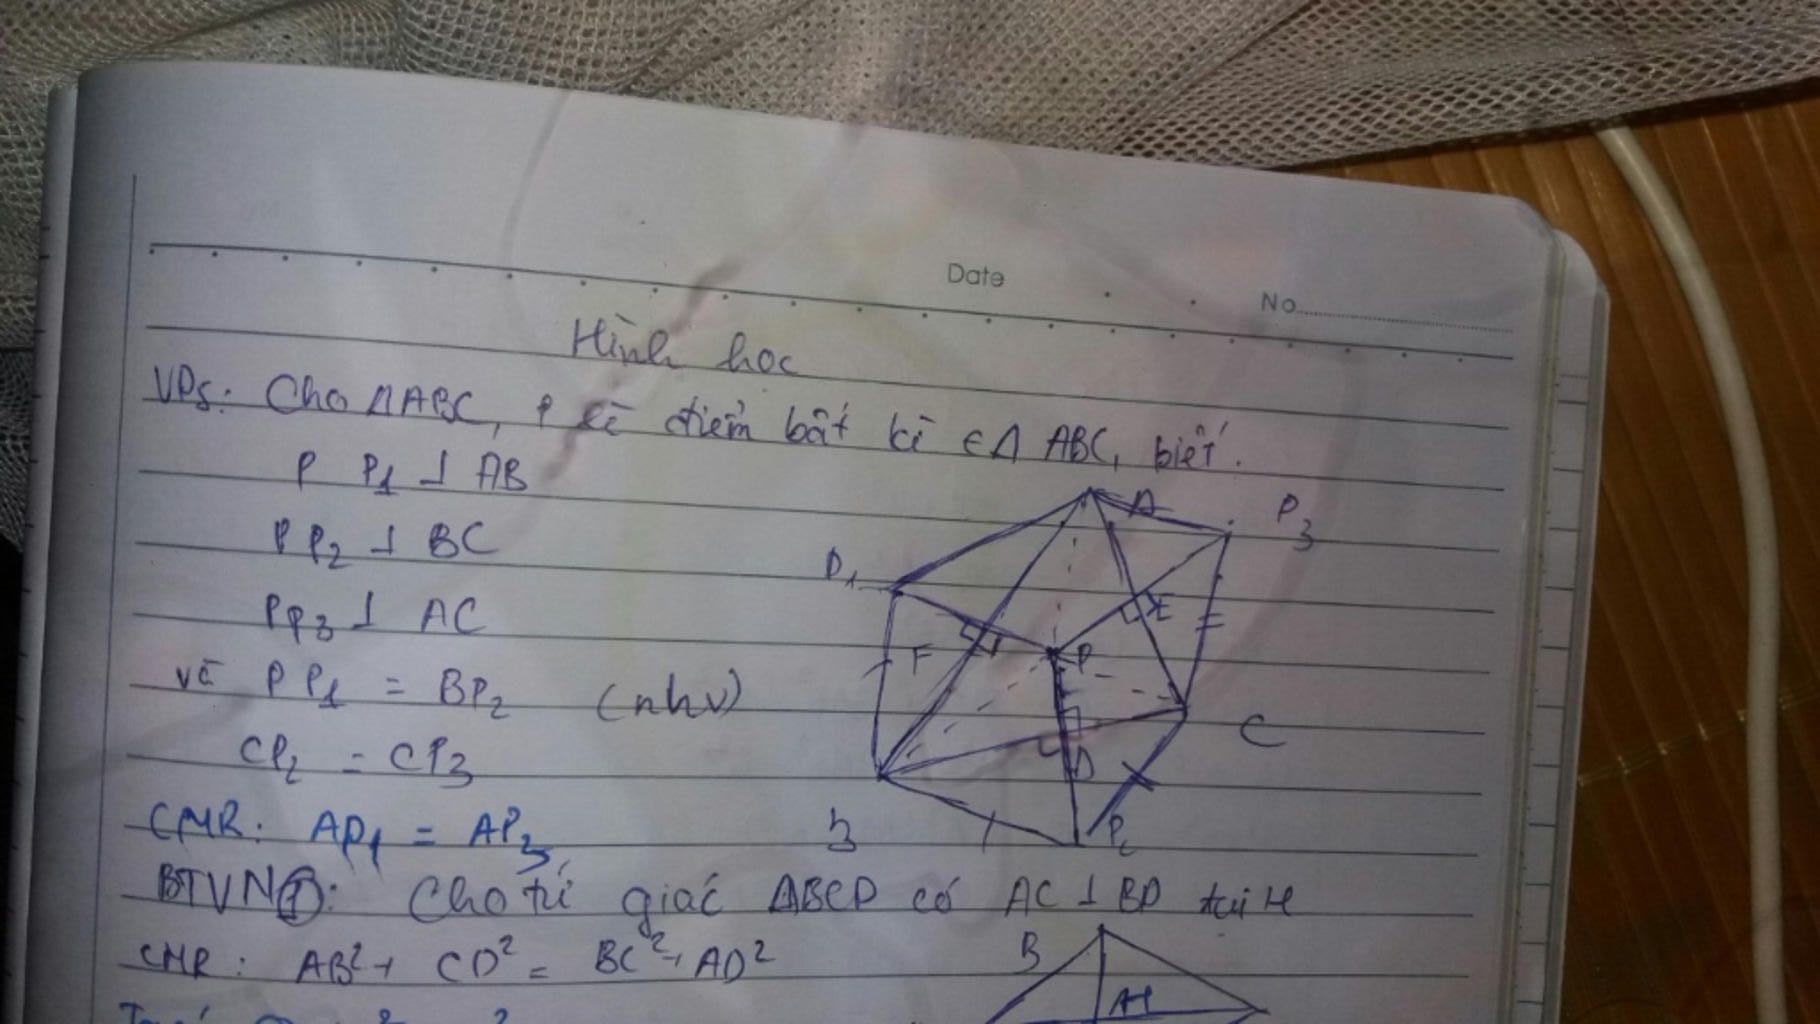 Date
No
Hình học
VD5: Cho ΔABC, P là điểm bất kì ∈ Δ ABC, biết.
P P1 ⊥ AB
P P2 ⊥ BC
PP3 ⊥ AC
và P P1 = BP2 (nhv)
CP2 = CP3
CMR: AP1 = AP3
A P3
P1
E
F P
C
D
B P2
BTVN①: Cho tứ giác ABCD có AC ⊥ BD tại H
CMR: AB² + CD² = BC² + AD²
B
H